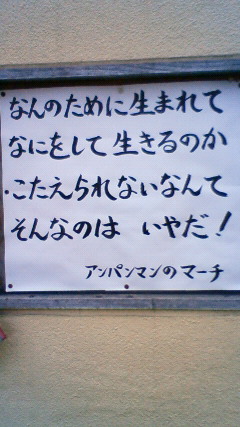 なんのために生まれて
なにをして生きるのか
こたえられないなんて
そんなのは いやだ!
アンパンマンのマーチ